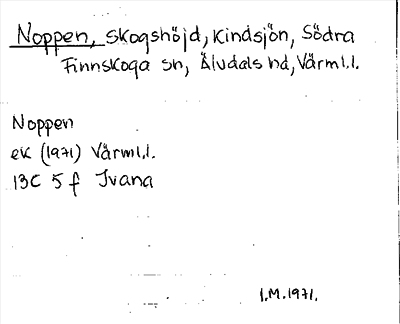 Noppen, skogshöjd, Kindsjön, Södra
Finnskoga sn, Älvdals hd, Värml.l.
Noppen
ek (1971) Värml.l.
13C 5 f Ivana
I.M. 1971.